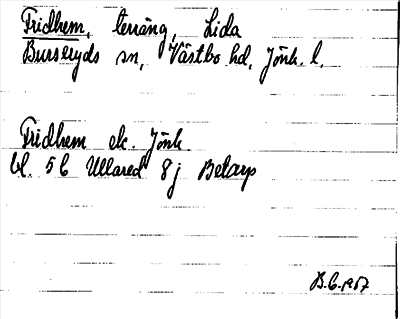 Fridhem, terräng, Lida
Burseryds sn, Västbo hd, Jönk. l.
Fridhem ek. Jönk.
bl. 5C Ullared 8j Betarp
B.C. 1967